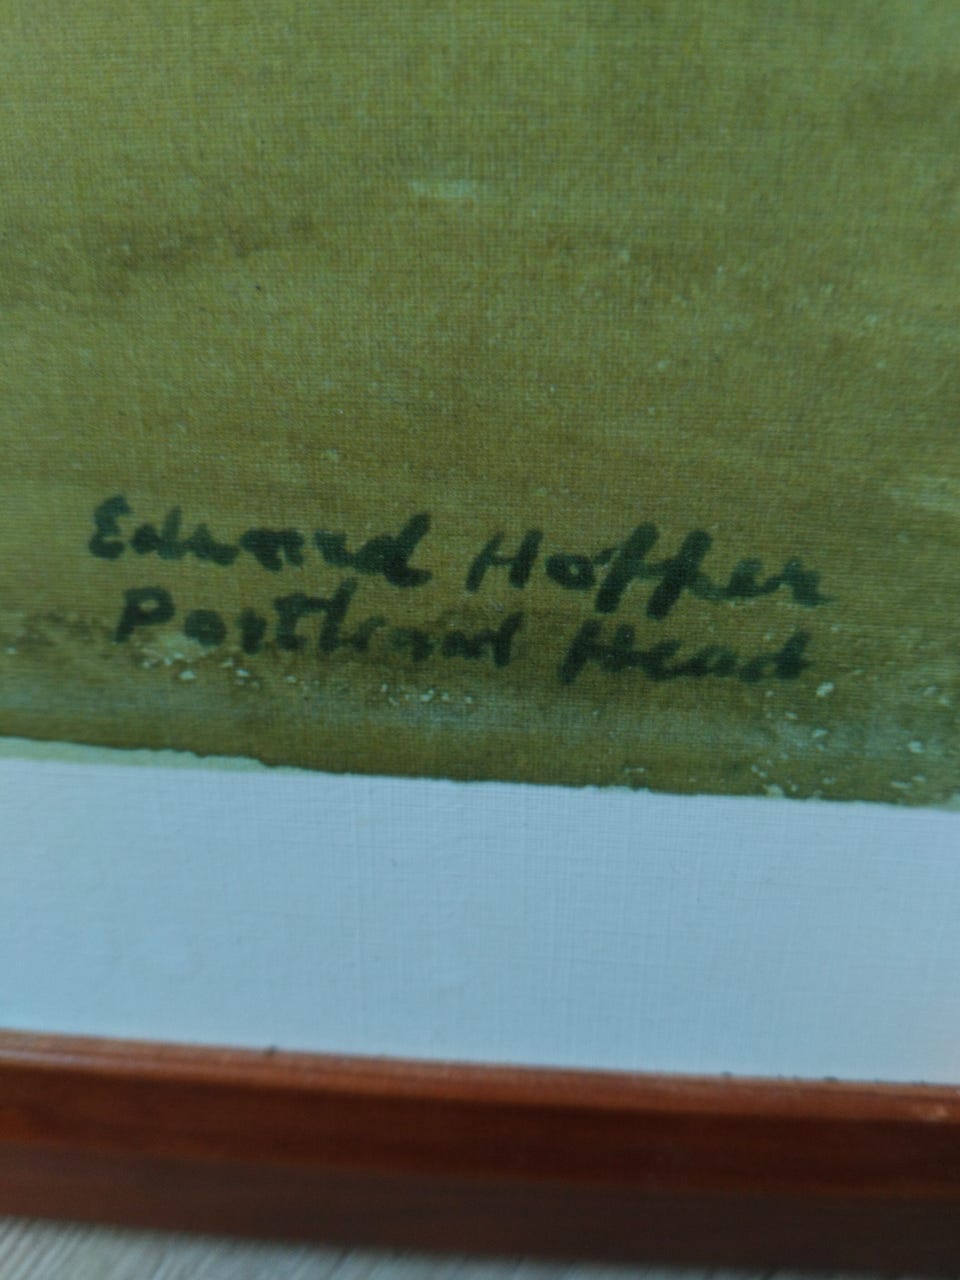 Edward Hopper
Portland Head